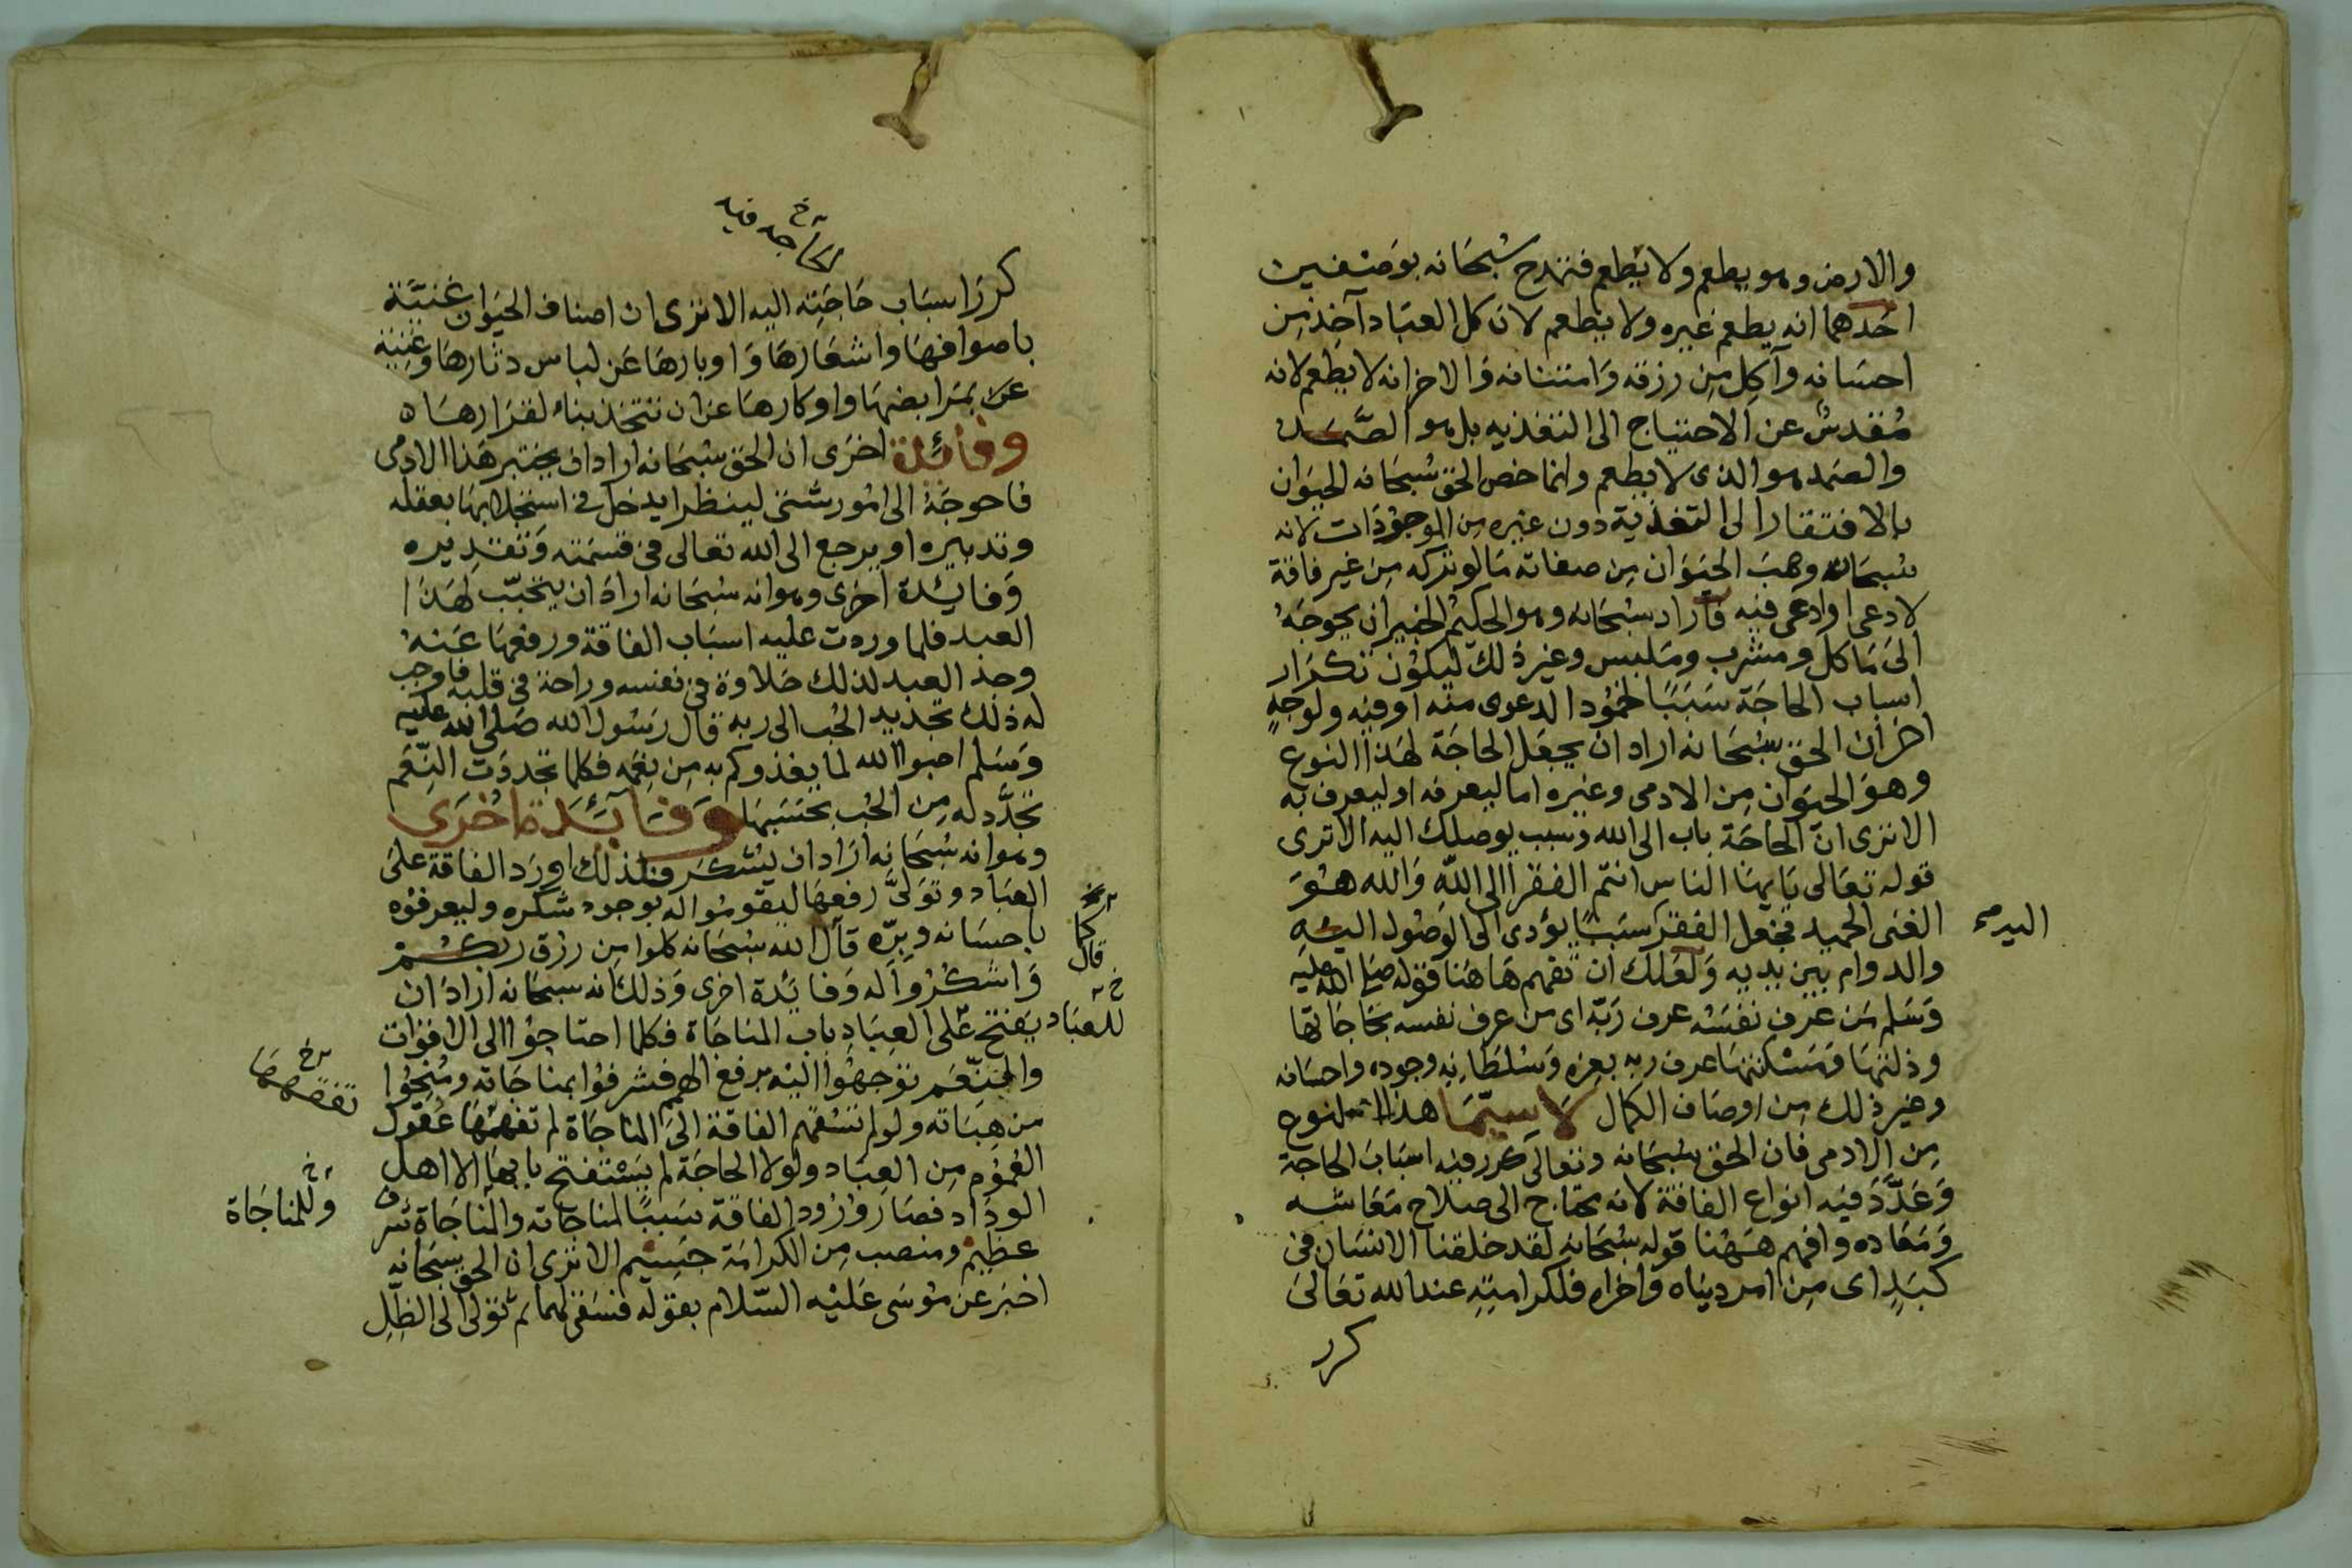 والارض وهو يطعم ولا يطعم فتمدح سبحانه بوصفين
احدهما انه يطعم غيره ولا يطعم لان كل العباد آخذ من
احسانه وآكل من رزقه وامتنانه والاخر انه لا يطعم لانه
مقدس عن الاحتياج الى التغذيه بل هو الصمد
والصمد هو الذى لا يطعم وانما خص الحق سبحانه الحيوان
بالافتقار الى التغذية دون غيره من الموجودات لانه
سبحانه وهب الحيوان من صفاته ما لو تركه من غير فاقة
لادعى او ادعى فيه فاراد سبحانه وهو الحكيم الخبير ان يحوجه
الى ماكل ومشرب وملبس وغير ذلك ليكون تكرار
اسباب الحاجة سببا لخمود الدعوى منه او فيه ولوجه
اخر ان الحق سبحانه اراد ان يجعل الحاجة لهذا النوع
وهو الحيوان من الادمى وغيره اما ليعرفه او ليعرف به
الا ترى ان الحاجة باب الى الله وسبب يوصلك اليه الا ترى
قوله تعالى يايها الناس انتم الفقرا الى الله والله هو
الغنى الحميد فجعل الفقر سببا يؤدى الى الوصول اليه
والدوام بين يديه ولعلك ان تفهم هاهنا قوله صلى الله عليه
وسلم من عرف نفسه عرف ربه اى من عرف نفسه بحاجاتها
وذلتها ومسكنتها عرف ربه بعزه وسلطانه وجوده واحسانه
وغير ذلك من اوصاف الكمال لا سيما هذا النوع
من الادمى فان الحق سبحانه وتعالى كرر فيه اسباب الحاجة
وعدد فيه انواع الفاقة لانه محتاج الى صلاح معاشه
ومعاده وافهم ههنا قوله سبحانه لقد خلقنا الانسان فى
كبد اى من امر دنياه واخراه فلكرامته عند الله تعالى
كرر
كرر اسباب حاجته اليه الا ترى ان اصناف الحيوان غنية
باصوافها واشعارها واوبارها عن لباس دثارها وغنية
عن بمرابضها واوكارها عن ان تتخذ بناء لقرارها ه
وفائدة اخرى ان الحق سبحانه اراد ان يختبر هذا الادمى
فاحوجه الى امور شتى لينظر ايدخل فى استجلابها بعقله
وتدبيره او يرجع الى الله تعالى فى قسمته وتقديره
وفايدة اخرى وهو انه سبحانه اراد ان يتحبب لهذا
العبد فلما وردت عليه اسباب الفاقة ورفعها عنه
وجد العبد لذلك حلاوة فى نفسه وراحة فى قلبه فاوجب
له ذلك تجديد الحب الى ربه قال رسول الله صلى الله عليه
وسلم احبوا الله لما يغذوكم به من نعمه فكلما تجددت النعم
تجدد له من الحب بحسبها وفائدة اخرى
وهو انه سبحانه اراد ان يشكر فلذلك اورد الفاقة على
العباد وتولى رفعها ليقوموا له بوجود شكره وليعرفوه
باحسانه وبره قال الله سبحانه كلوا من رزق ربكم
واشكروا له وفائدة اخرى وذلك انه سبحانه اراد ان
يفتح على العباد باب المناجاة فكلما احتاجوا الى الاقوات
والنعم توجهوا اليه برفع الهمم فشرفوا بمناجاته ومنحوا
من هباته ولو لم تسقهم الفاقة الى المناجاة لم تفهمها عقول
العموم من العباد ولولا الحاجة لم يستفتح بابها الا اهل
الوداد فصار ورود الفاقة سببا لمناجاته والمناجاة شرف
عظيم ومنصب من الكرامة جسيم الا ترى ان الحق سبحانه
اخبر عن موسى عليه السلام بقوله فسقى لهما ثم تولى الى الظل
كما
قال
للعباد
وللمناجاة